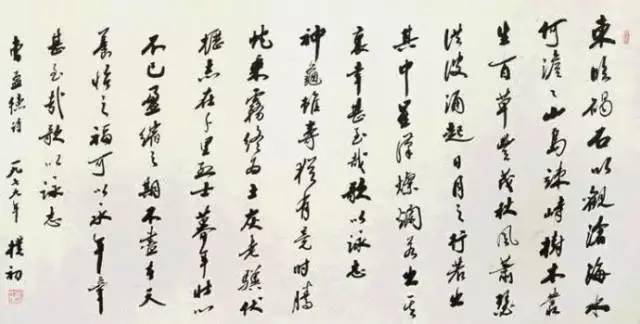 東臨碣石以觀滄海水
何澹々山島竦峙樹木叢
生百草豐茂秋風蕭瑟
洪波涌起日月之行若出
其中星漢燦爛若出其
裏幸甚至哉歌以詠志
神龜雖壽猶有竟時騰
蛇乘霧終為土灰老驥伏
櫪志在千里烈士暮年壯心
不已盈縮之期不盡在天
養怡之福可以永年幸
甚至哉歌以詠志
曹孟德詩 樸初